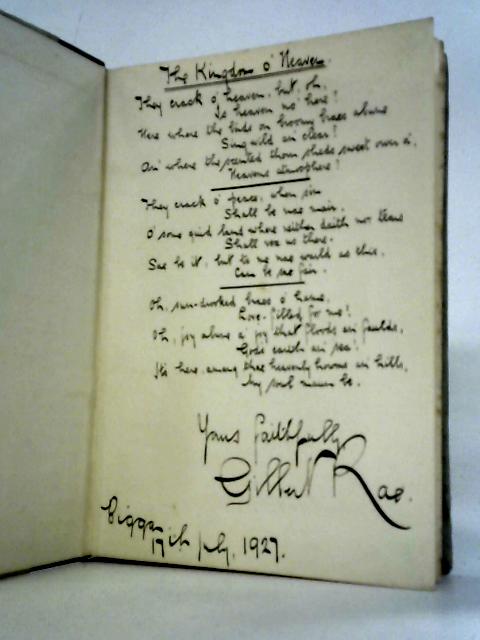 The Kingdom o' Heaven.
They crack o' heaven, but, oh,
Is heaven no' here?
Here where the birds on broomy braes abune
Sing wild an' clear!
An' where the scented thorn sheds sweet owre a',
Heavens atmosphere!
They crack o' peace, when sin
Shall be nae mair.
O' some guid land where neither daith nor tears
Shall vex us there.
Sae be it, but to me nae warld as this,
Can be sae fair.
Oh, sun-drooked braes o' hame,
Love-filled for me!
Oh, joy abune a' joy that floods an' faulds,
Gods earth an' sea!
It's here, among thae heavenly howms an' hills,
My soul maun be.
Yours faithfully
Gilbert Rae.
Biggar
17th July, 1927.